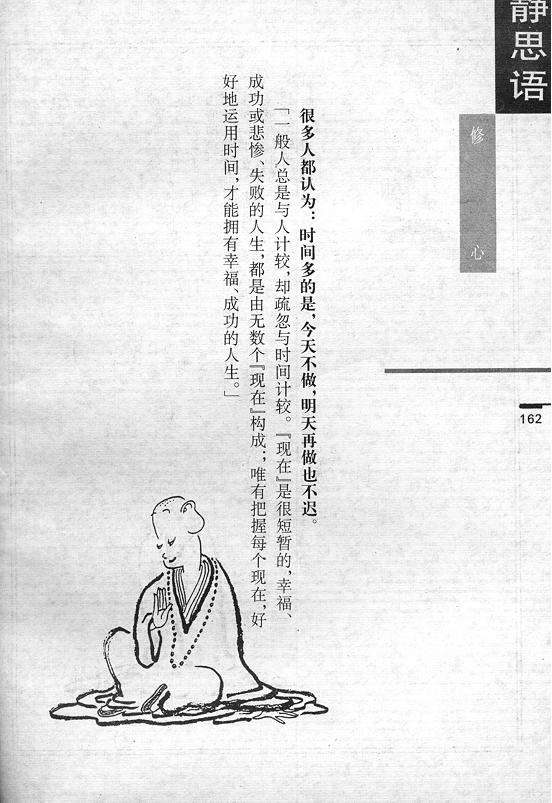 静思语
修心
很多人都认为：时间多的是，今天不做，明天再做也不迟。
「一般人总是与人计较，却疏忽与时间计较。『现在』是很短暂的，幸福、
成功或悲惨、失败的人生，都是由无数个『现在』构成；唯有把握每个现在，好
好地运用时间，才能拥有幸福、成功的人生。」
162